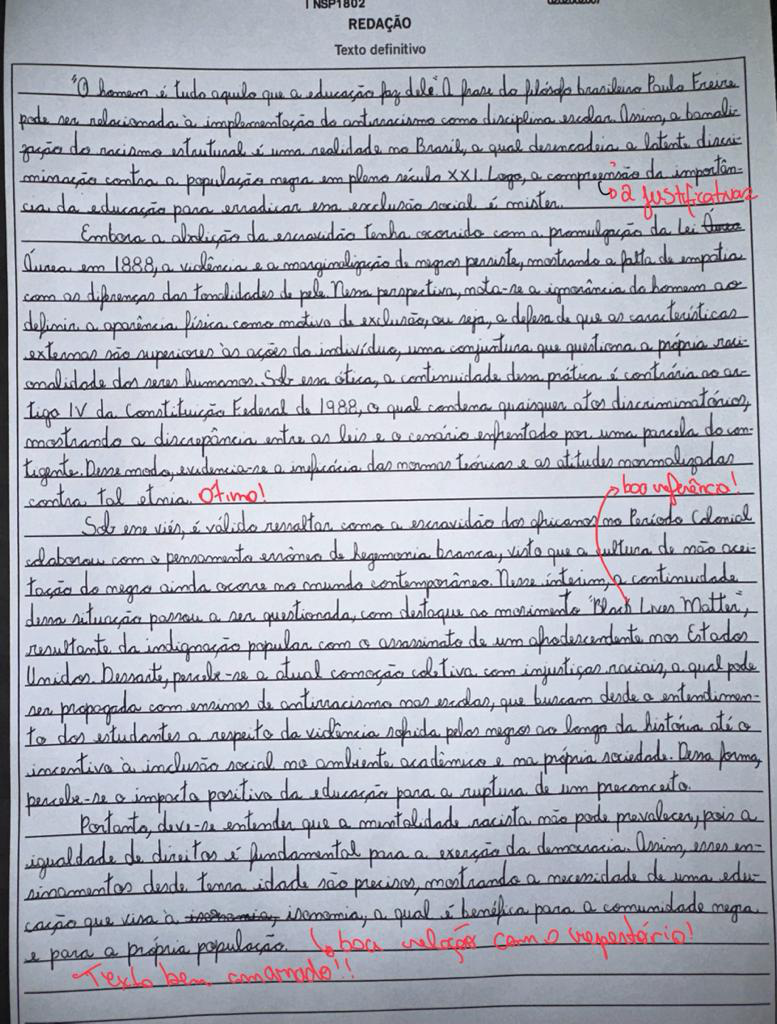 NSP1802
REDAÇÃO
Texto definitivo
"O homem é tudo aquilo que a educação faz dele". A frase do filósofo brasileiro Paulo Freire
pode ser relacionada à implementação do antirracismo como disciplina escolar. Assim, a banali-
zação do racismo estrutural é uma realidade no Brasil, a qual desencadeia a latente discri-
minação contra a população negra em pleno século XXI. Logo, a compreensão da importân-
cia da educação para erradicar essa exclusão social é mister.
→ 2 justificativas
Embora a abolição da escravidão tenha ocorrido com a promulgação da Lei Áurea
Áurea em 1888, a violência e a marginalização de negros persiste, mostrando a falta de empatia
com as diferenças das tonalidades de pele. Nessa perspectiva, nota-se a ignorância do homem ao
definir a aparência física como motivo de exclusão, ou seja, a defesa de que as características
externas são superiores às ações do indivíduo, uma conjuntura que questiona a própria raci-
onalidade dos seres humanos. Sob essa ótica, a continuidade dessa prática é contrária ao ar-
tigo IV da Constituição Federal de 1988, o qual condena quaisquer atos discriminatórios,
mostrando a discrepância entre as leis e o cenário enfrentado por uma parcela do con-
tigente. Desse modo, evidencia-se a ineficácia das normas teóricas e as atitudes normalizadas
contra tal etnia. Ótimo!
→ boa referência!
Sob esse viés, é válido ressaltar como a escravidão dos africanos no Período Colonial
colaborou com o pensamento errôneo de hegemonia branca, visto que a cultura de não acei-
tação do negro ainda ocorre no mundo contemporâneo. Nesse ínterim, a continuidade
dessa situação passou a ser questionada, com destaque ao movimento "Black Lives Matter",
resultante da indignação popular com o assassinato de um afrodescendente nos Estados
Unidos. Dessarte, percebe-se a atual comoção coletiva com injustiças raciais, a qual pode
ser propagada com ensinos de antirracismo nas escolas, que buscam desde o entendimen-
to dos estudantes a respeito da violência sofrida pelos negros ao longo da história até o
incentivo à inclusão social no ambiente acadêmico e na própria sociedade. Dessa forma,
percebe-se o impacto positivo da educação para a ruptura de um preconceito.
Portanto, deve-se entender que a mentalidade racista não pode prevalecer, pois a
igualdade de direitos é fundamental para a exerção da democracia. Assim, esses en-
sinamentos desde tenra idade são precisos, mostrando a necessidade de uma edu-
cação que visa à isonomia, isonomia, a qual é benéfica para a comunidade negra
e para a própria população. ↳ boa relação com o repertório!
Texto bem amarrado!!